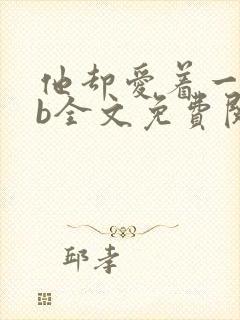 他却爱着一
b全文免費閱
邱幸